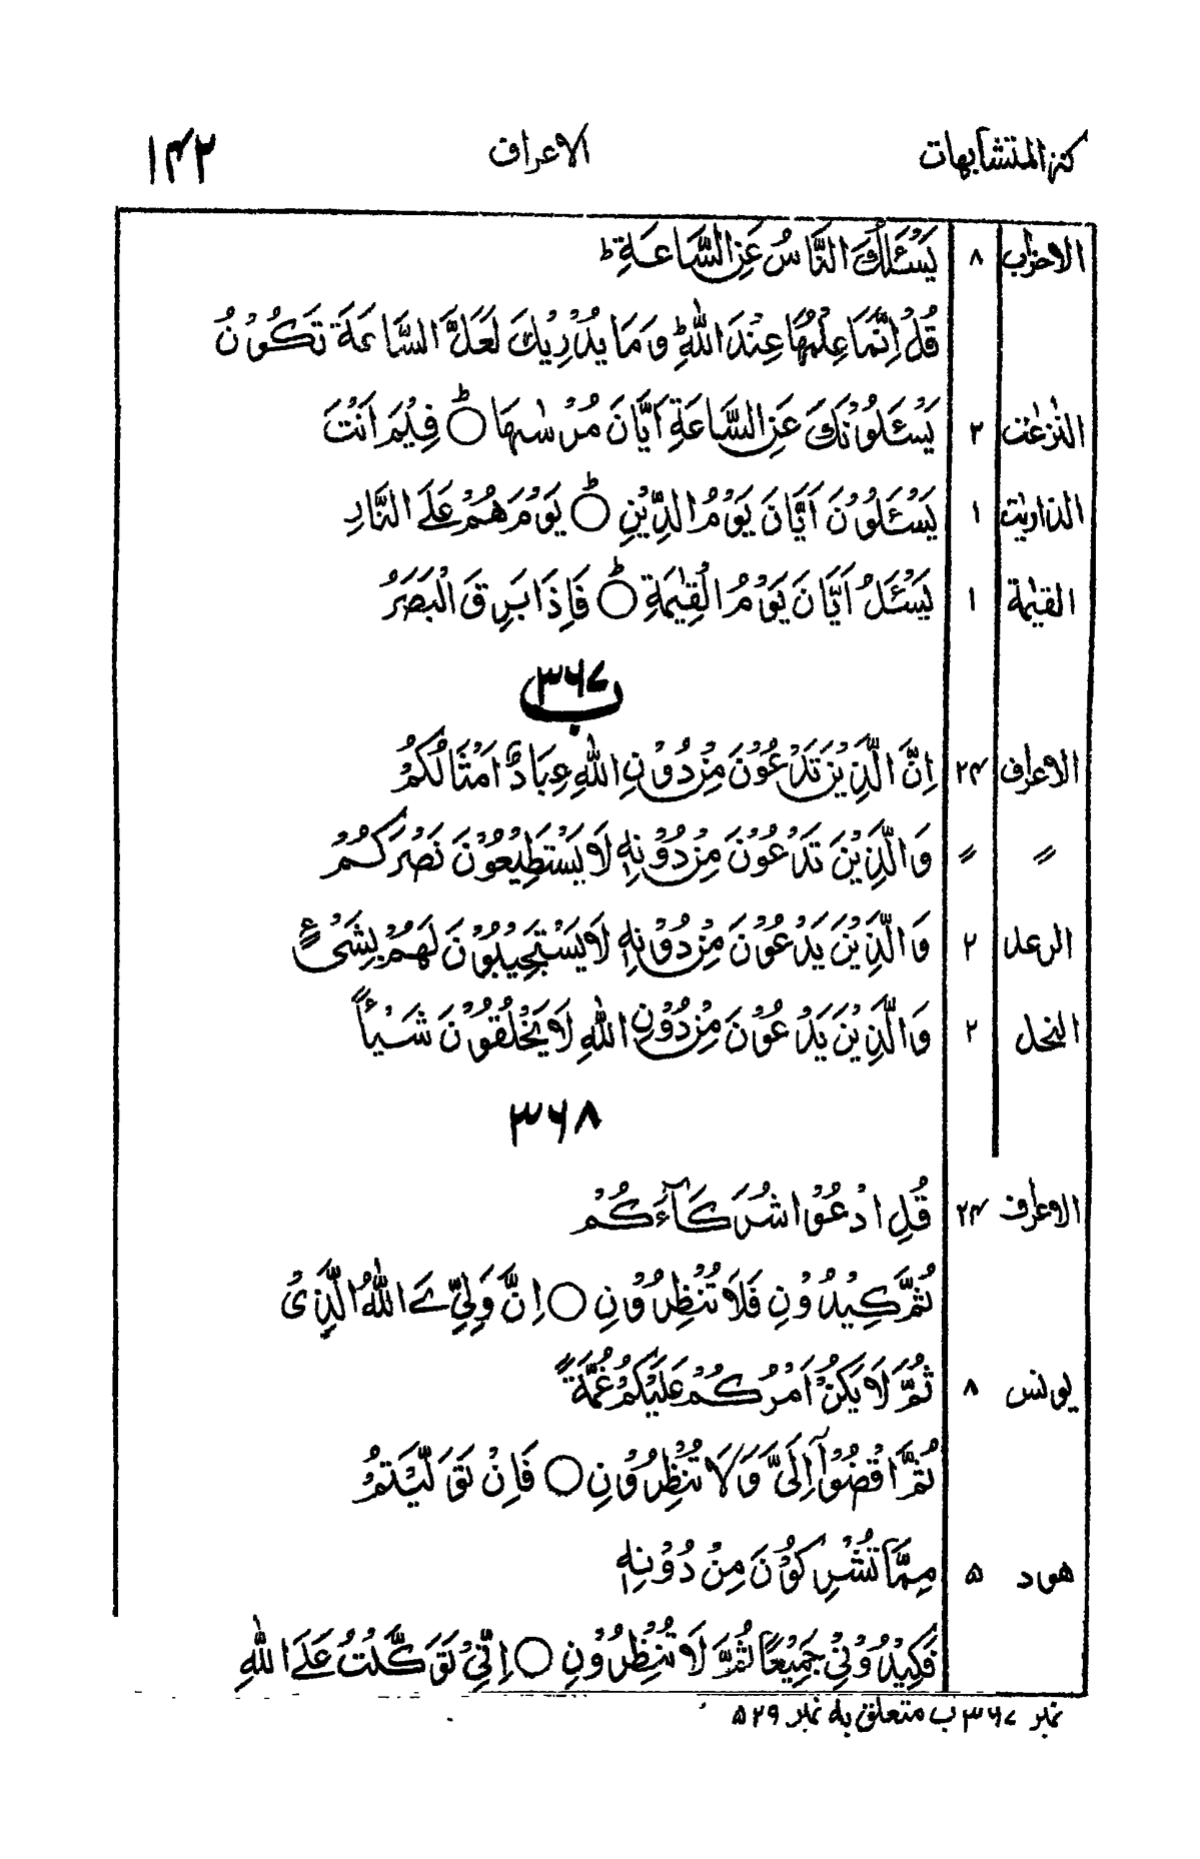 كنز المتشابهات الاعراف ۱۴۲
الاحزاب ۸ يَسْئَلُكَ النَّاسُ عَنِ السَّاعَةِ ؕ
قُلْ اِنَّمَا عِلْمُهَا عِنْدَ اللّٰهِ ؕ وَمَا يُدْرِيْكَ لَعَلَّ السَّاعَةَ تَكُوْنُ
النّٰزعٰت ۲ يَسْئَلُوْنَكَ عَنِ السَّاعَةِ اَيَّانَ مُرْسٰىهَا ؕ○ فِيْمَ اَنْتَ
الذاريٰت ۱ يَسْئَلُوْنَ اَيَّانَ يَوْمُ الدِّيْنِ ؕ○ يَوْمَ هُمْ عَلَى النَّارِ
القيٰمة ۱ يَسْئَلُ اَيَّانَ يَوْمُ الْقِيٰمَةِ ؕ○ فَاِذَا بَرِقَ الْبَصَرُ
۳۶۷ ب
الاعراف ۲۴ اِنَّ الَّذِيْنَ تَدْعُوْنَ مِنْ دُوْنِ اللّٰهِ عِبَادٌ اَمْثَالُكُمْ
〃 〃 وَالَّذِيْنَ تَدْعُوْنَ مِنْ دُوْنِهٖ لَا يَسْتَطِيْعُوْنَ نَصْرَكُمْ
الرعد ۲ وَالَّذِيْنَ يَدْعُوْنَ مِنْ دُوْنِهٖ لَا يَسْتَجِيْبُوْنَ لَهُمْ بِشَىْءٍ
النحل ۲ وَالَّذِيْنَ يَدْعُوْنَ مِنْ دُوْنِ اللّٰهِ لَا يَخْلُقُوْنَ شَيْئًا
۳۶۸
الاعراف ۲۴ قُلِ ادْعُوْا شُرَكَآءَكُمْ
ثُمَّ كِيْدُوْنِ فَلَا تُنْظِرُوْنِ ○ اِنَّ وَلِيِّ َے اللّٰهُ الَّذِىْ
يونس ۸ ثُمَّ لَا يَكُنْ اَمْرُكُمْ عَلَيْكُمْ غُمَّةً
ثُمَّ اقْضُوْٓا اِلَىَّ وَلَا تُنْظِرُوْنِ ○ فَاِنْ تَوَلَّيْتُمْ
هود ۵ مِمَّا تُشْرِكُوْنَ مِنْ دُوْنِهٖ
فَكِيْدُوْنِىْ جَمِيْعًا ثُمَّ لَا تُنْظِرُوْنِ ○ اِنِّىْ تَوَكَّلْتُ عَلَى اللّٰهِ
نمبر ۳۶۷ ب متعلق به نمبر ۵۲۹